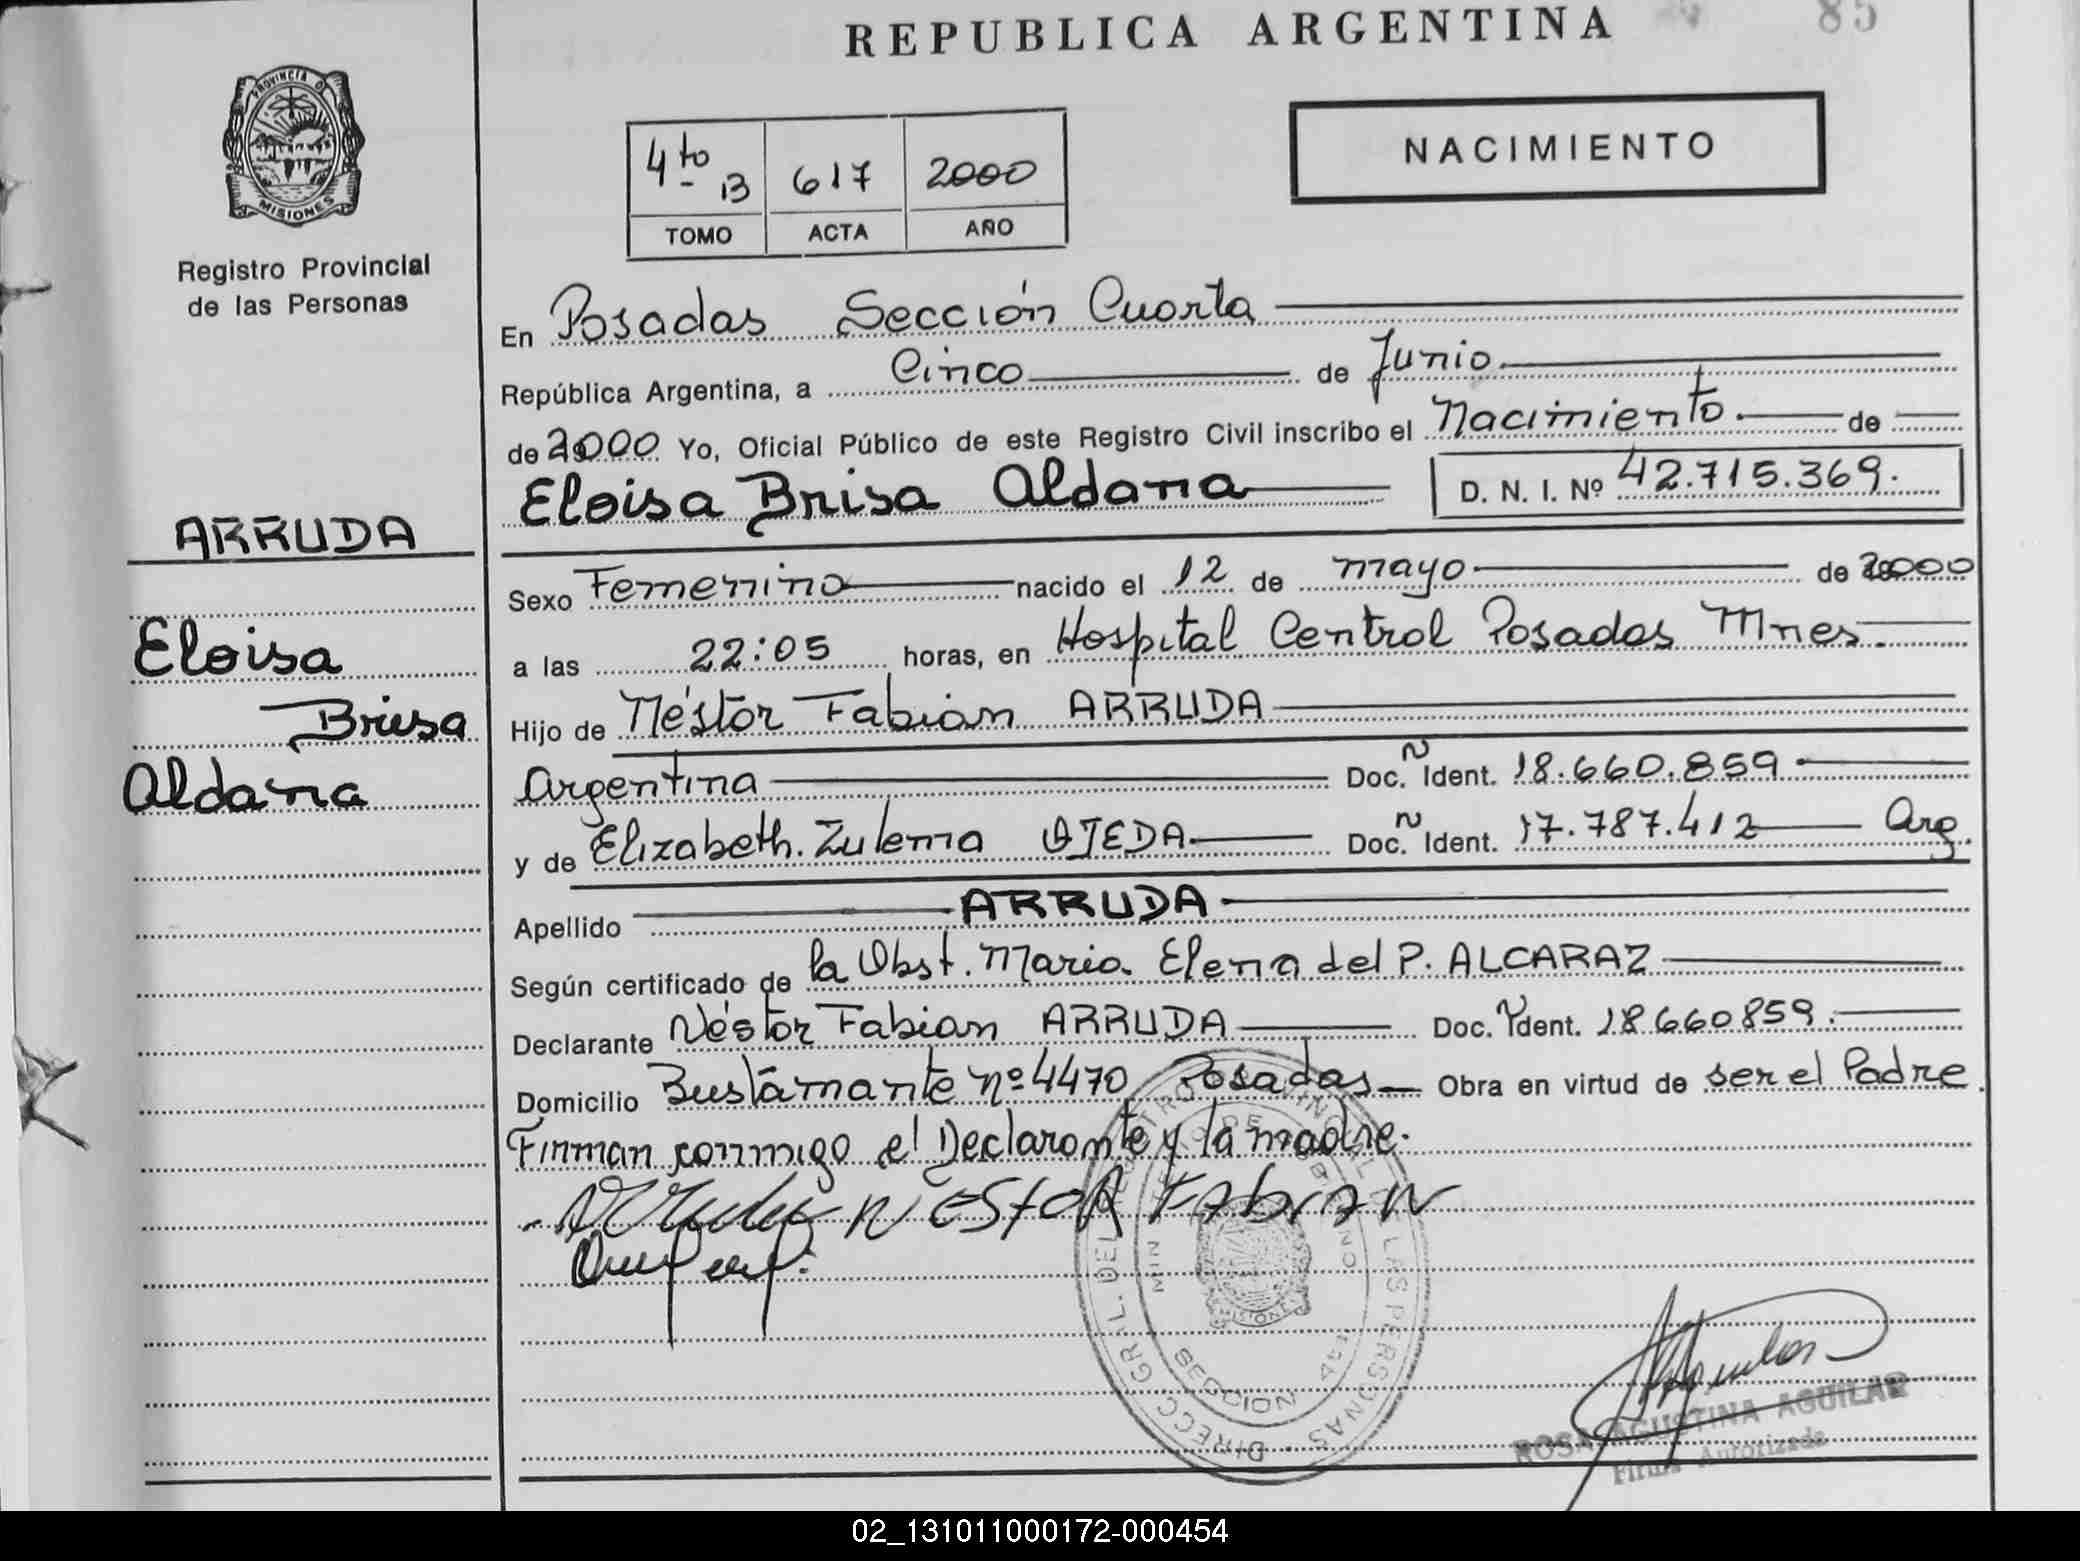 REPUBLICA ARGENTINA
85
PROVINCIA DE
MISIONES
Registro Provincial
de las Personas
4to B 617 2000
TOMO ACTA AÑO
NACIMIENTO
En Posadas Sección Cuarta
República Argentina, a Cinco de Junio
de 2000 Yo, Oficial Público de este Registro Civil inscribo el Nacimiento de
Eloisa Brisa Aldana D. N. I. Nº 42.715.369.
ARRUDA
Eloisa
Brisa
Aldana
Sexo Femenino nacido el 12 de mayo de 2000
a las 22:05 horas, en Hospital Central Posadas Mnes.
Hijo de Néstor Fabian ARRUDA
Argentina Doc. Ident. 18.660.859
y de Elizabeth Zulema OJEDA Doc. Ident. 17.787.412 Arg.
Apellido ARRUDA
Según certificado de la Obst. Maria Elena del P. ALCARAZ
Declarante Néstor Fabian ARRUDA Doc. Ident. 18660859.
Domicilio Bustamante nº 4470 Posadas Obra en virtud de ser el Padre
Firman conmigo el Declarante y la madre.
NESTOR FABIAN
DIRECC GRAL. DEL REGISTRO PROVINCIAL DE LAS PERSONAS
MINISTERIO DE GOBIERNO
MISIONES
SECCION 4ta
ROSA AGUSTINA AGUILAR
Firma Autorizada
02_131011000172-000454